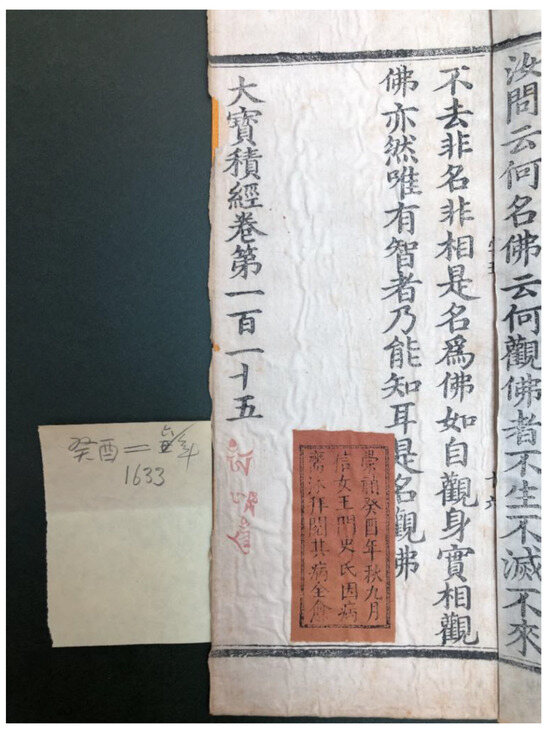 汝問云何名佛云何觀佛者不生不滅不來
十六
不去非名非相是名爲佛如自觀身實相觀
佛亦然唯有智者乃能知耳是名觀佛
崇禎癸酉年秋九月
信女王門史氏因病
齋沐拜閱其病全愈
大寶積經卷第一百一十五
癸酉＝
1633